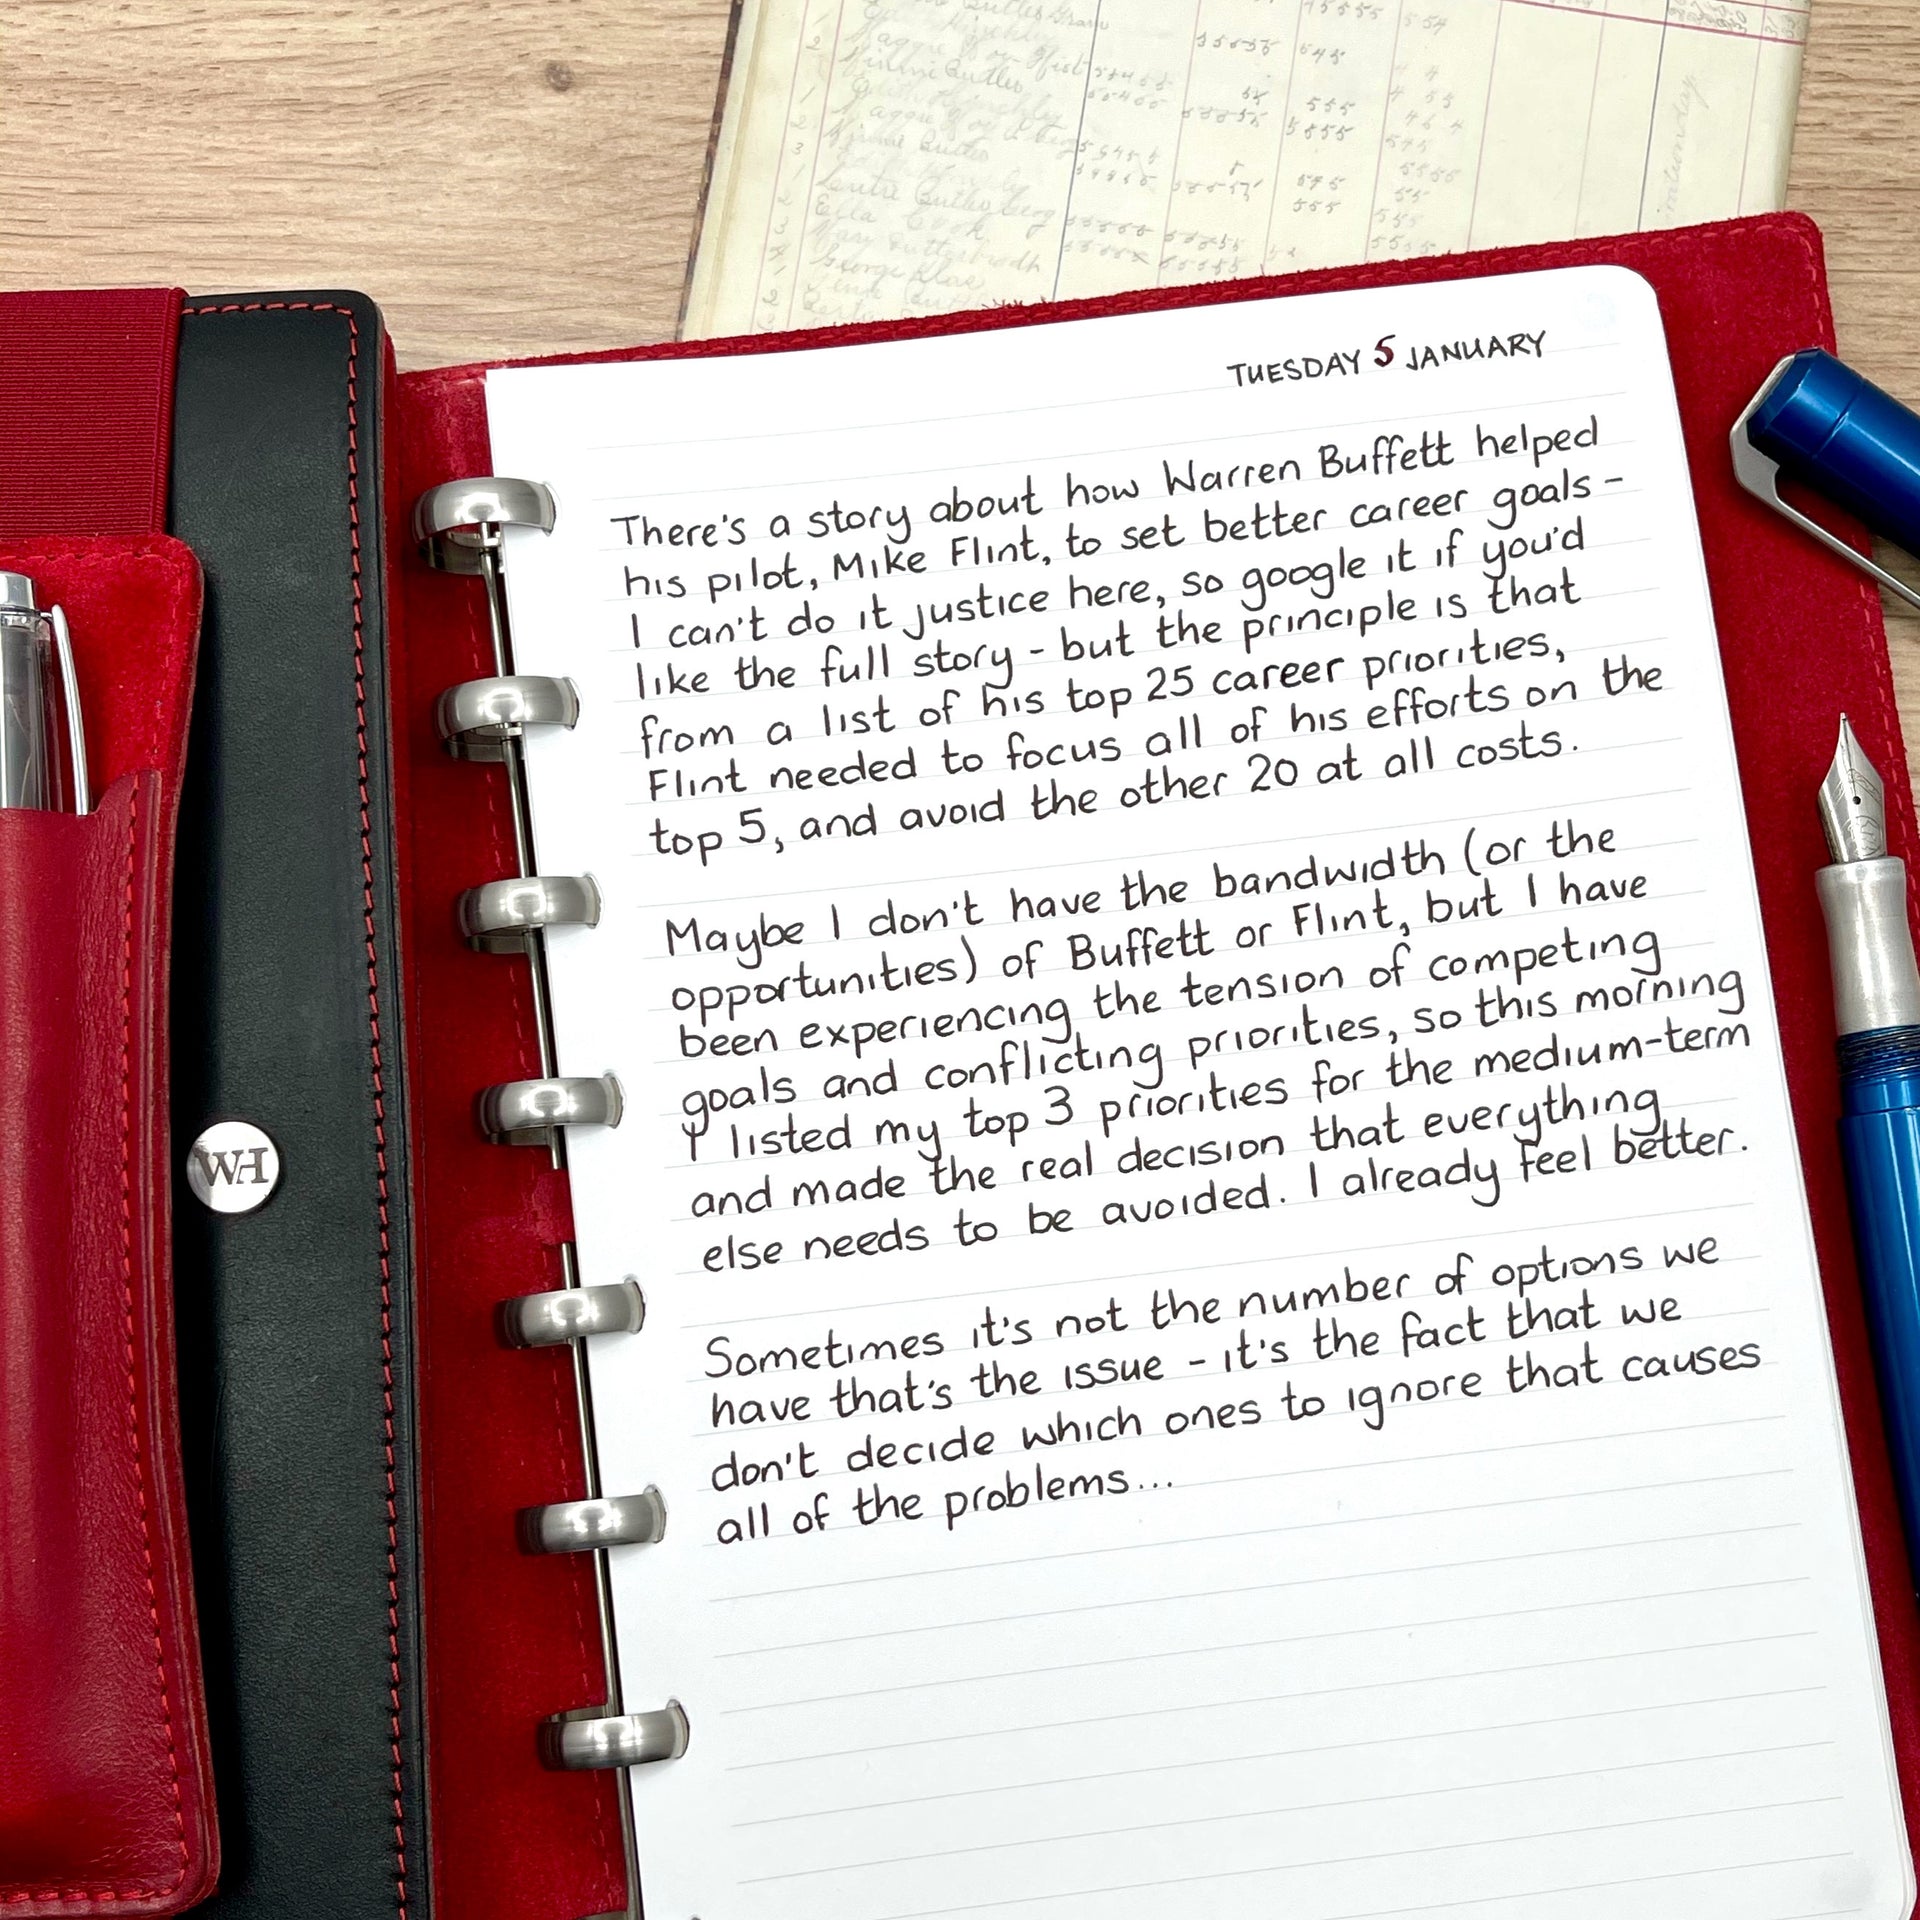 TUESDAY 5 JANUARY
There's a story about how Warren Buffett helped
his pilot, Mike Flint, to set better career goals -
I can't do it justice here, so google it if you'd
like the full story - but the principle is that
from a list of his top 25 career priorities,
Flint needed to focus all of his efforts on the
top 5, and avoid the other 20 at all costs.
Maybe I don't have the bandwidth (or the
opportunities) of Buffett or Flint, but I have
been experiencing the tension of competing
goals and conflicting priorities, so this morning
I listed my top 3 priorities for the medium-term
and made the real decision that everything
else needs to be avoided. I already feel better.
Sometimes it's not the number of options we
have that's the issue - it's the fact that we
don't decide which ones to ignore that causes
all of the problems...
WH